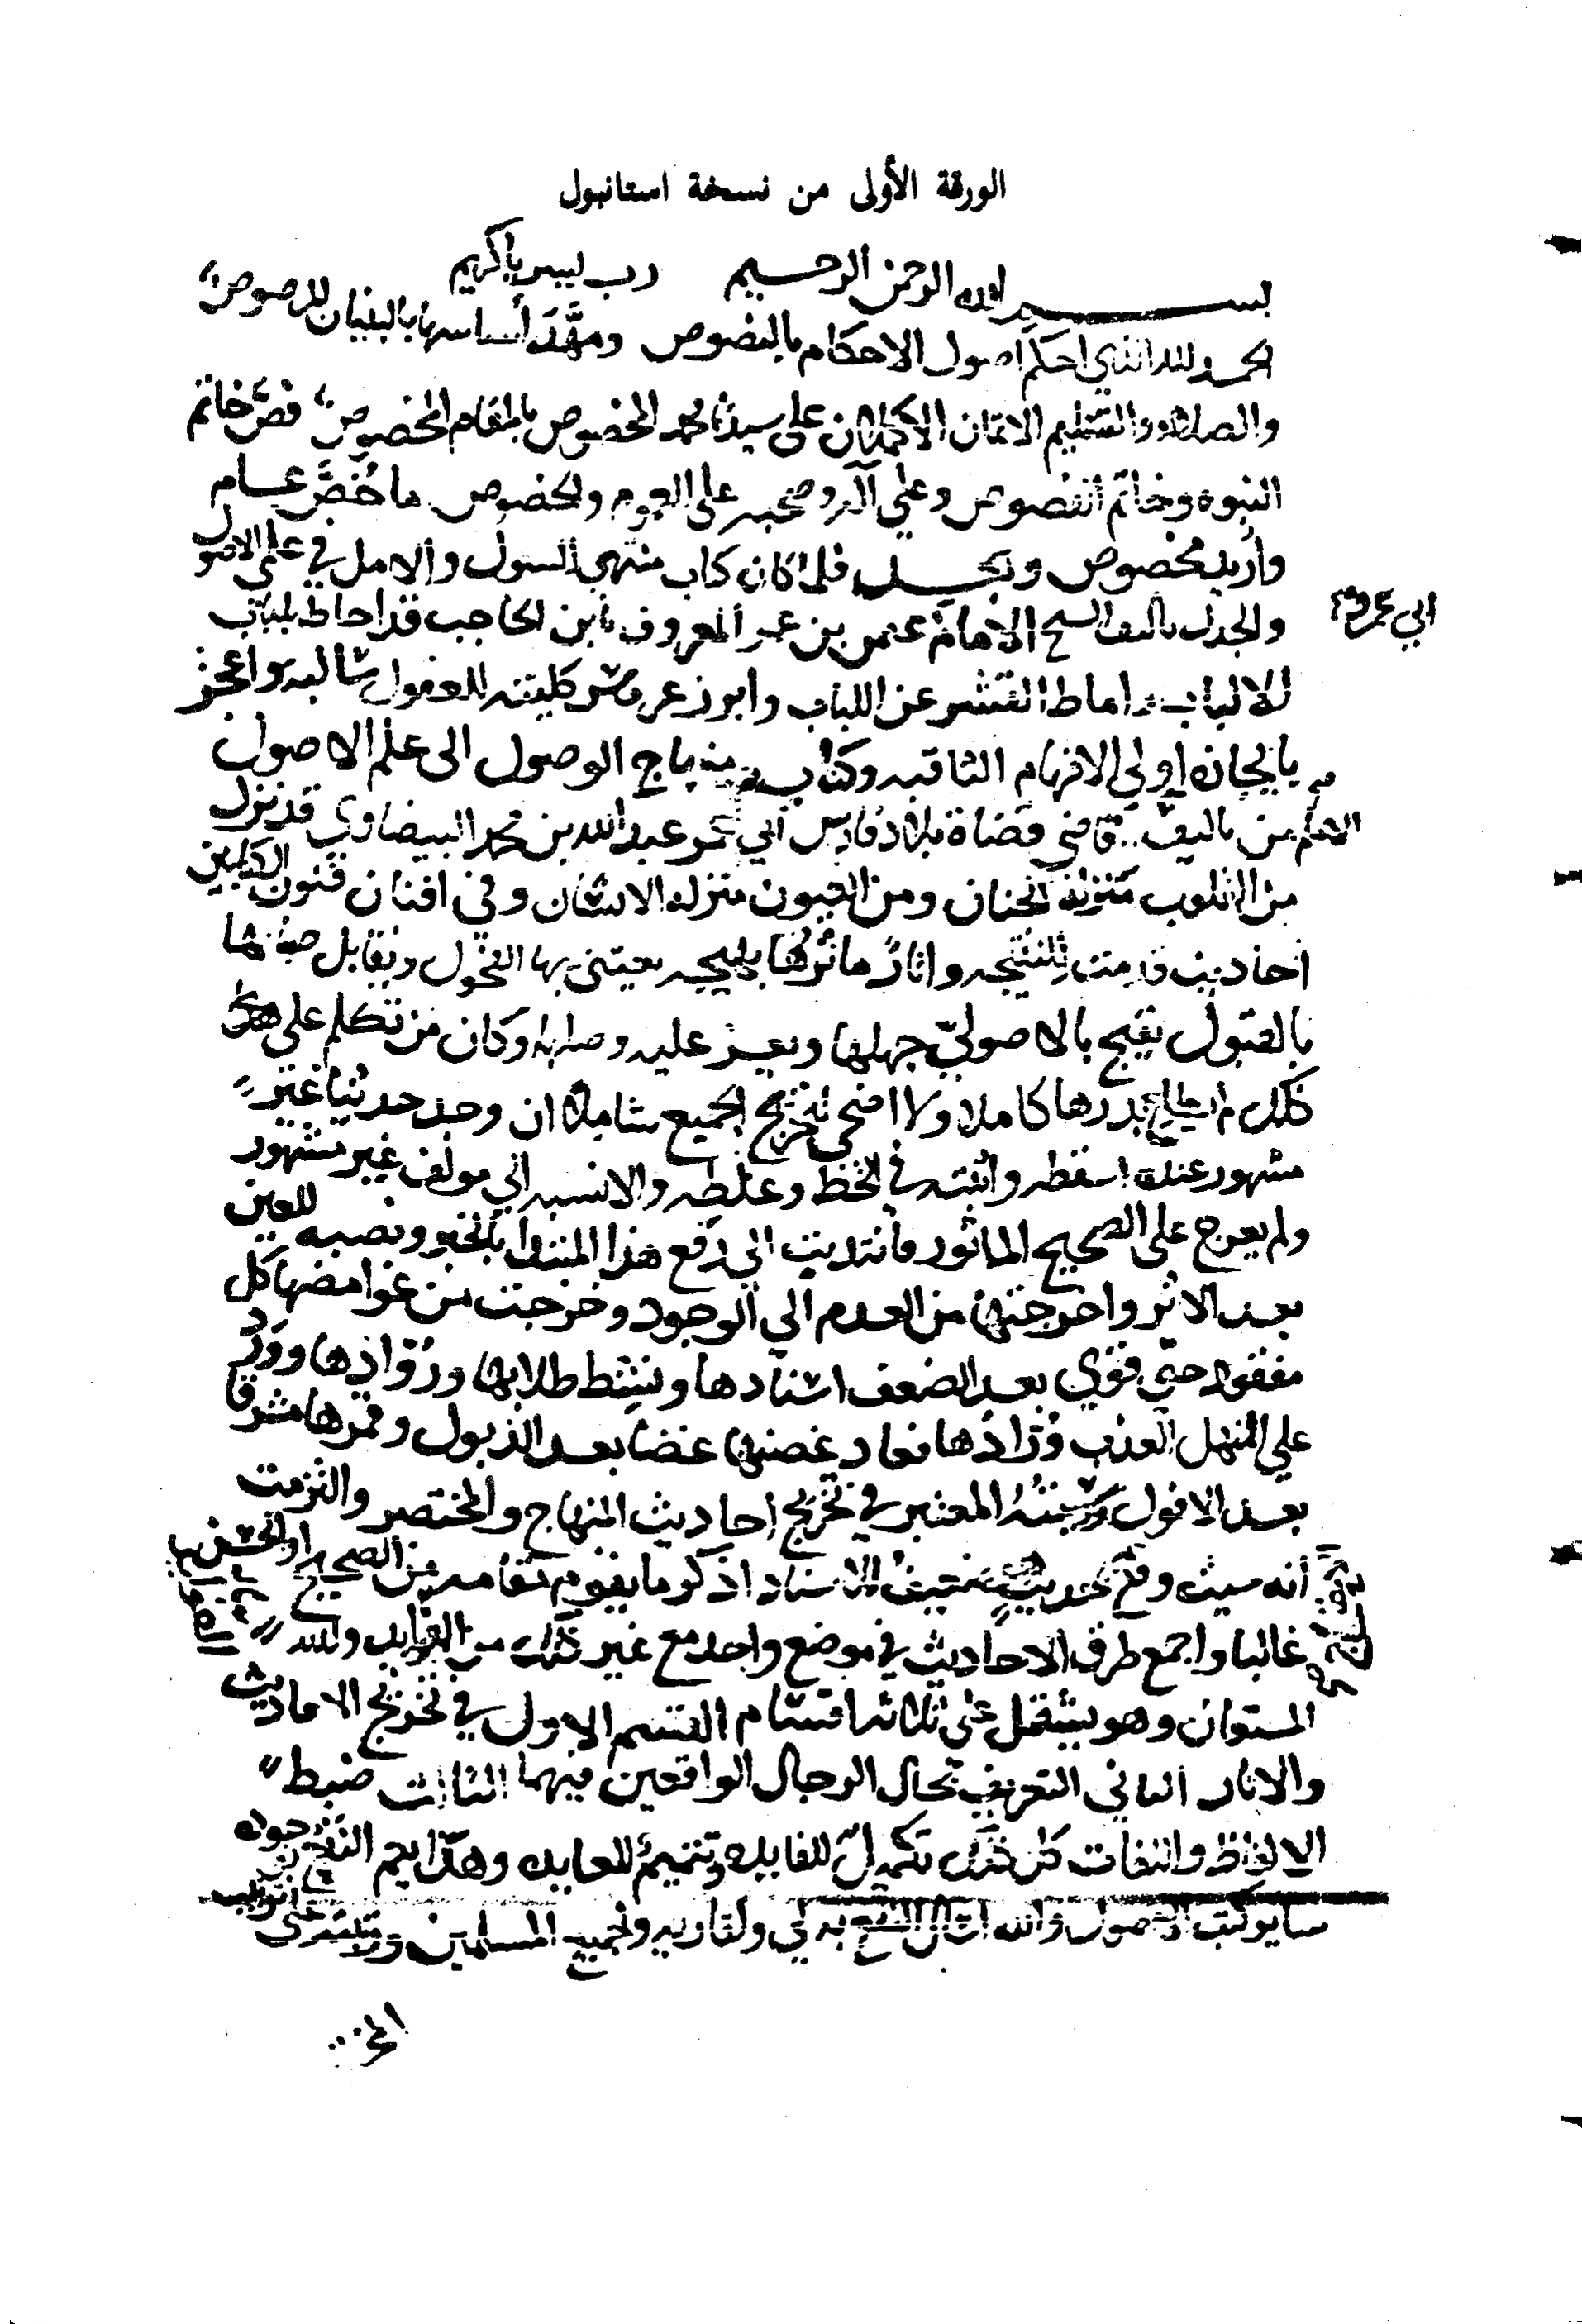 الورقة الأولى من نسخة استانبول
بسم الله الرحمن الرحيم رب يسر يا كريم
الحمد لله الذي احكم اصول الاحكام بالنصوص ومهَّدَ أساسها بالبنيان المرصوص
والصلاة والتسليم الاتمان الاكملان على سيدنا محمد المخصوص بالمقام المخصوص فصّ خاتم
النبوة وخاتم الفصوص وعلى آله وصحبه على العموم والخصوص ما خُصَّ عام
وأريد مخصوص وبعد فلما كان كتاب منتهى السول والامل في علمي الاصول
والجدل تاليف الشيخ الامام عثمن بن عمر المعروف بابن الحاجب قد احاط بلباب
ابي عمرو
الالباب واماط القشر عن اللباب وابرز عرايس كليته للعقول سالبه واعجز
بايجازه اولي الافهام الثاقبه وكتاب منهاج الوصول الى علم الاصول
الامام من تاليف قاضي قضاة بلاد فارس ابي عمر عبد الله بن محمد البيضاوي قد نزل
من القلوب منزلة الجنان ومن العيون منزلة الانسان وفي افنان فنون الكتابين
احاديث قدمت للنتيجه واثارٌ ماثرُها بهيجه يعتنى بها الفحول ويقابل
بالقبول يقبح بالاصوليّ جهلها ويعز عليه وكان من تكلم على هذا
ذلك لم بدرها كاملا ولا اضحى لتخريج الجميع شاملا ان وجد حديثا غير
مشهور عنده اسقطه واثبته في الخط وغلطه والا نسبه الى مولف غير مشهور
ولم يعرج على الصحيح الماثور فانتدبت الى رفع هذا المبتدا بالخبر ونصبه للعين
بعد الاثر واخرجتها من العدم الى الوجود وخرجت من غوامضها كل
مفقود حتى قوي بعد الضعف اسنادها ونشط طلابها وروّادها وورد
على المنهل العذب ورّادُها فعاد غصنها غضا بعد الذبول وقمرها مشرقا
بعد الافول وسميتُهُ المعتبر في تخريج احاديث المنهاج والمختصر والتزمت
أنه حيث وقع حديث ضعيف الاسناد اذكر ما يقوم مقامه من الصحيح او الحسن
غالبا واجمع طرق الاحاديث في موضع واحد مع غير ذلك من الفوايد والله
المستعان وهو يشتمل على ثلاثه اقسام القسم الاول في تخريج الاحاديث
والاثار الثاني التعريف بحال الرجال الواقعين فيهما الثالث ضبط
الالفاظ واللغات كل ذلك تكميلٌ للفايده وتتميمٌ للعايده وهذا يعم النفع
ساير كتب الاصول والله اسال النفع به لي ولقاريه ولجميع المسلمين
الخ...